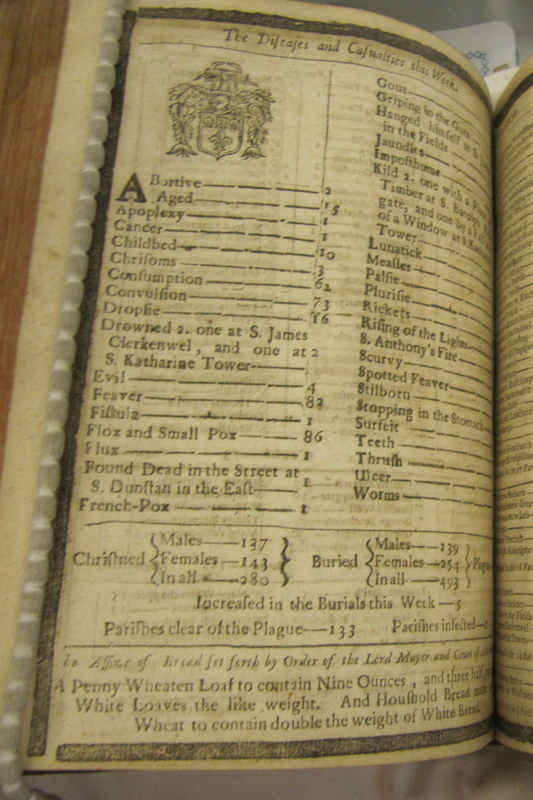 The Diſeaſes and Caſualties this Week.
ABortive 2
Aged 15
Apoplexy 1
Cancer 1
Childbed 10
Chriſoms 3
Conſumption 62
Convulſion 73
Dropſie 16
Drowned 2. one at S. James
Clerkenwel, and one at 2
S. Katharine Tower
Evil 4
Feaver 82
Fiſtula 1
Flox and Small Pox 86
Flux 1
Found Dead in the Street at
S. Dunſtan in the Eaſt 1
French-Pox 1
Gout
Griping in the Guts
Hanged himſelf at S.
in the Fields
Jaundies
Impoſthume
Kild 2. one with a
Timber at S.
gate, and one by a
of a Window at S.
Tower
Lunatick
Meaſles
Palſie
Pluriſie
Rickets
Riſing of the Lights
S. Anthony's Fire
Scurvy
Spotted Feaver
Stilborn
Stopping in the Stomach
Surfeit
Teeth
Thruſh
Ulcer
Worms
Chriſtned { Males 137 Females 143 In all 280 }
Buried { Males 239 Females 254 In all 493 } Plague
Increaſed in the Burials this Week 5
Pariſhes clear of the Plague 133 Pariſhes infected 0
Aſſize of Bread ſet forth by Order of the Lord Mayor and Court of
A Penny Wheaten Loaf to contain Nine Ounces, and three half
White Loaves the like weight. And Houſhold Bread made
Wheat to contain double the weight of White Bread.